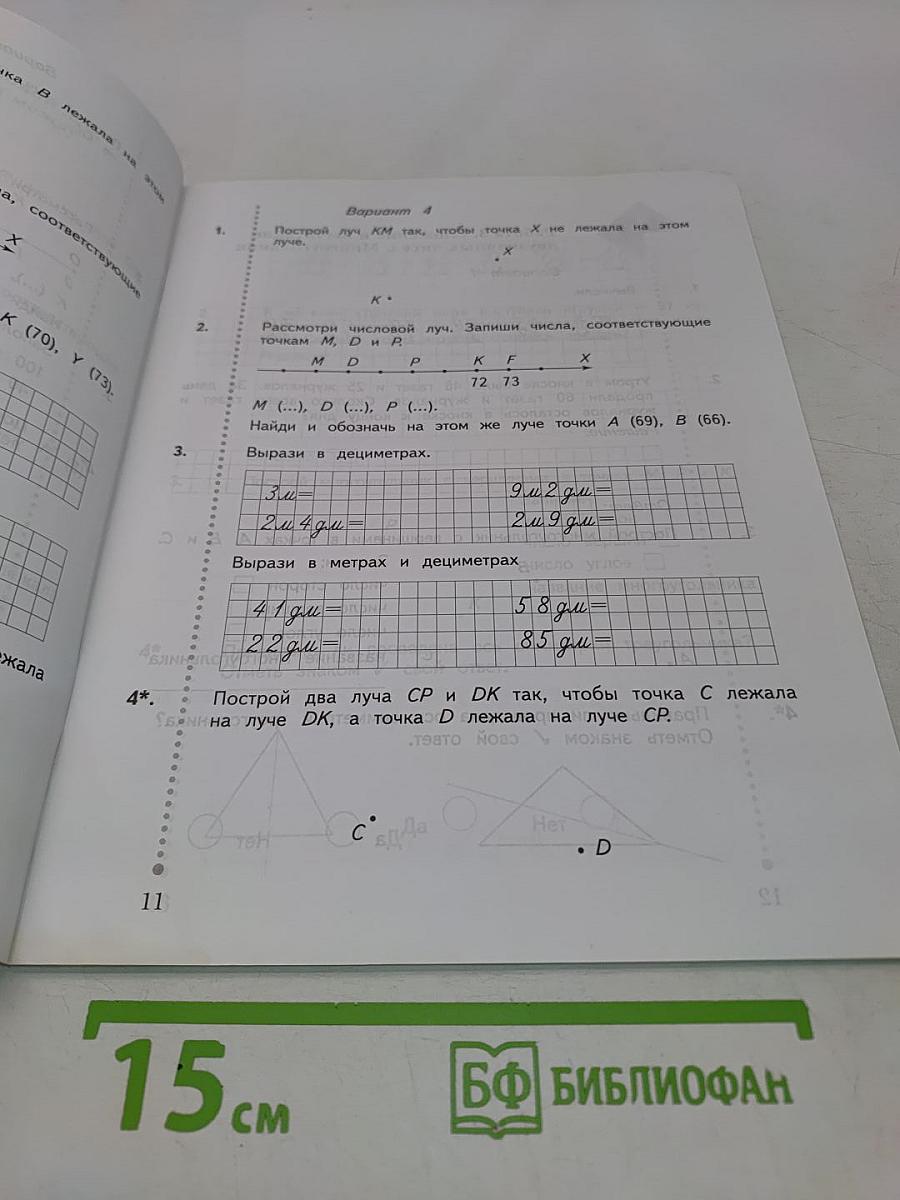 нка В лежала на этом
соответствующие
X
K (70), Y (73).
лежала
Вариант 4
1. Построй луч KM так, чтобы точка X не лежала на этом
луче.
X
K
2. Рассмотри числовой луч. Запиши числа, соответствующие
точкам M, D и P.
M D P K F X
72 73
M (...), D (...), P (...).
Найди и обозначь на этом же луче точки A (69), B (66).
3. Вырази в дециметрах.
3м= 9м2дм=
2м4дм= 2м9дм=
Вырази в метрах и дециметрах
41дм= 58дм=
22дм= 85дм=
4*. Построй два луча CP и DK так, чтобы точка C лежала
на луче DK, а точка D лежала на луче CP.
C
D
11
15 см
БФ БИБЛИОФАН